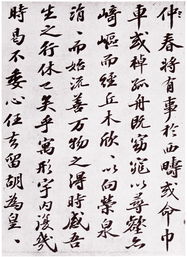 仲春將有事於西疇或命巾
車或棹孤舟既窈窕以尋壑亦
崎嶇而經丘木欣〻以向榮泉
涓〻而始流善萬物之得時感吾
生之行休已矣乎寓形宇內復幾
時曷不委心任去留胡為皇〻